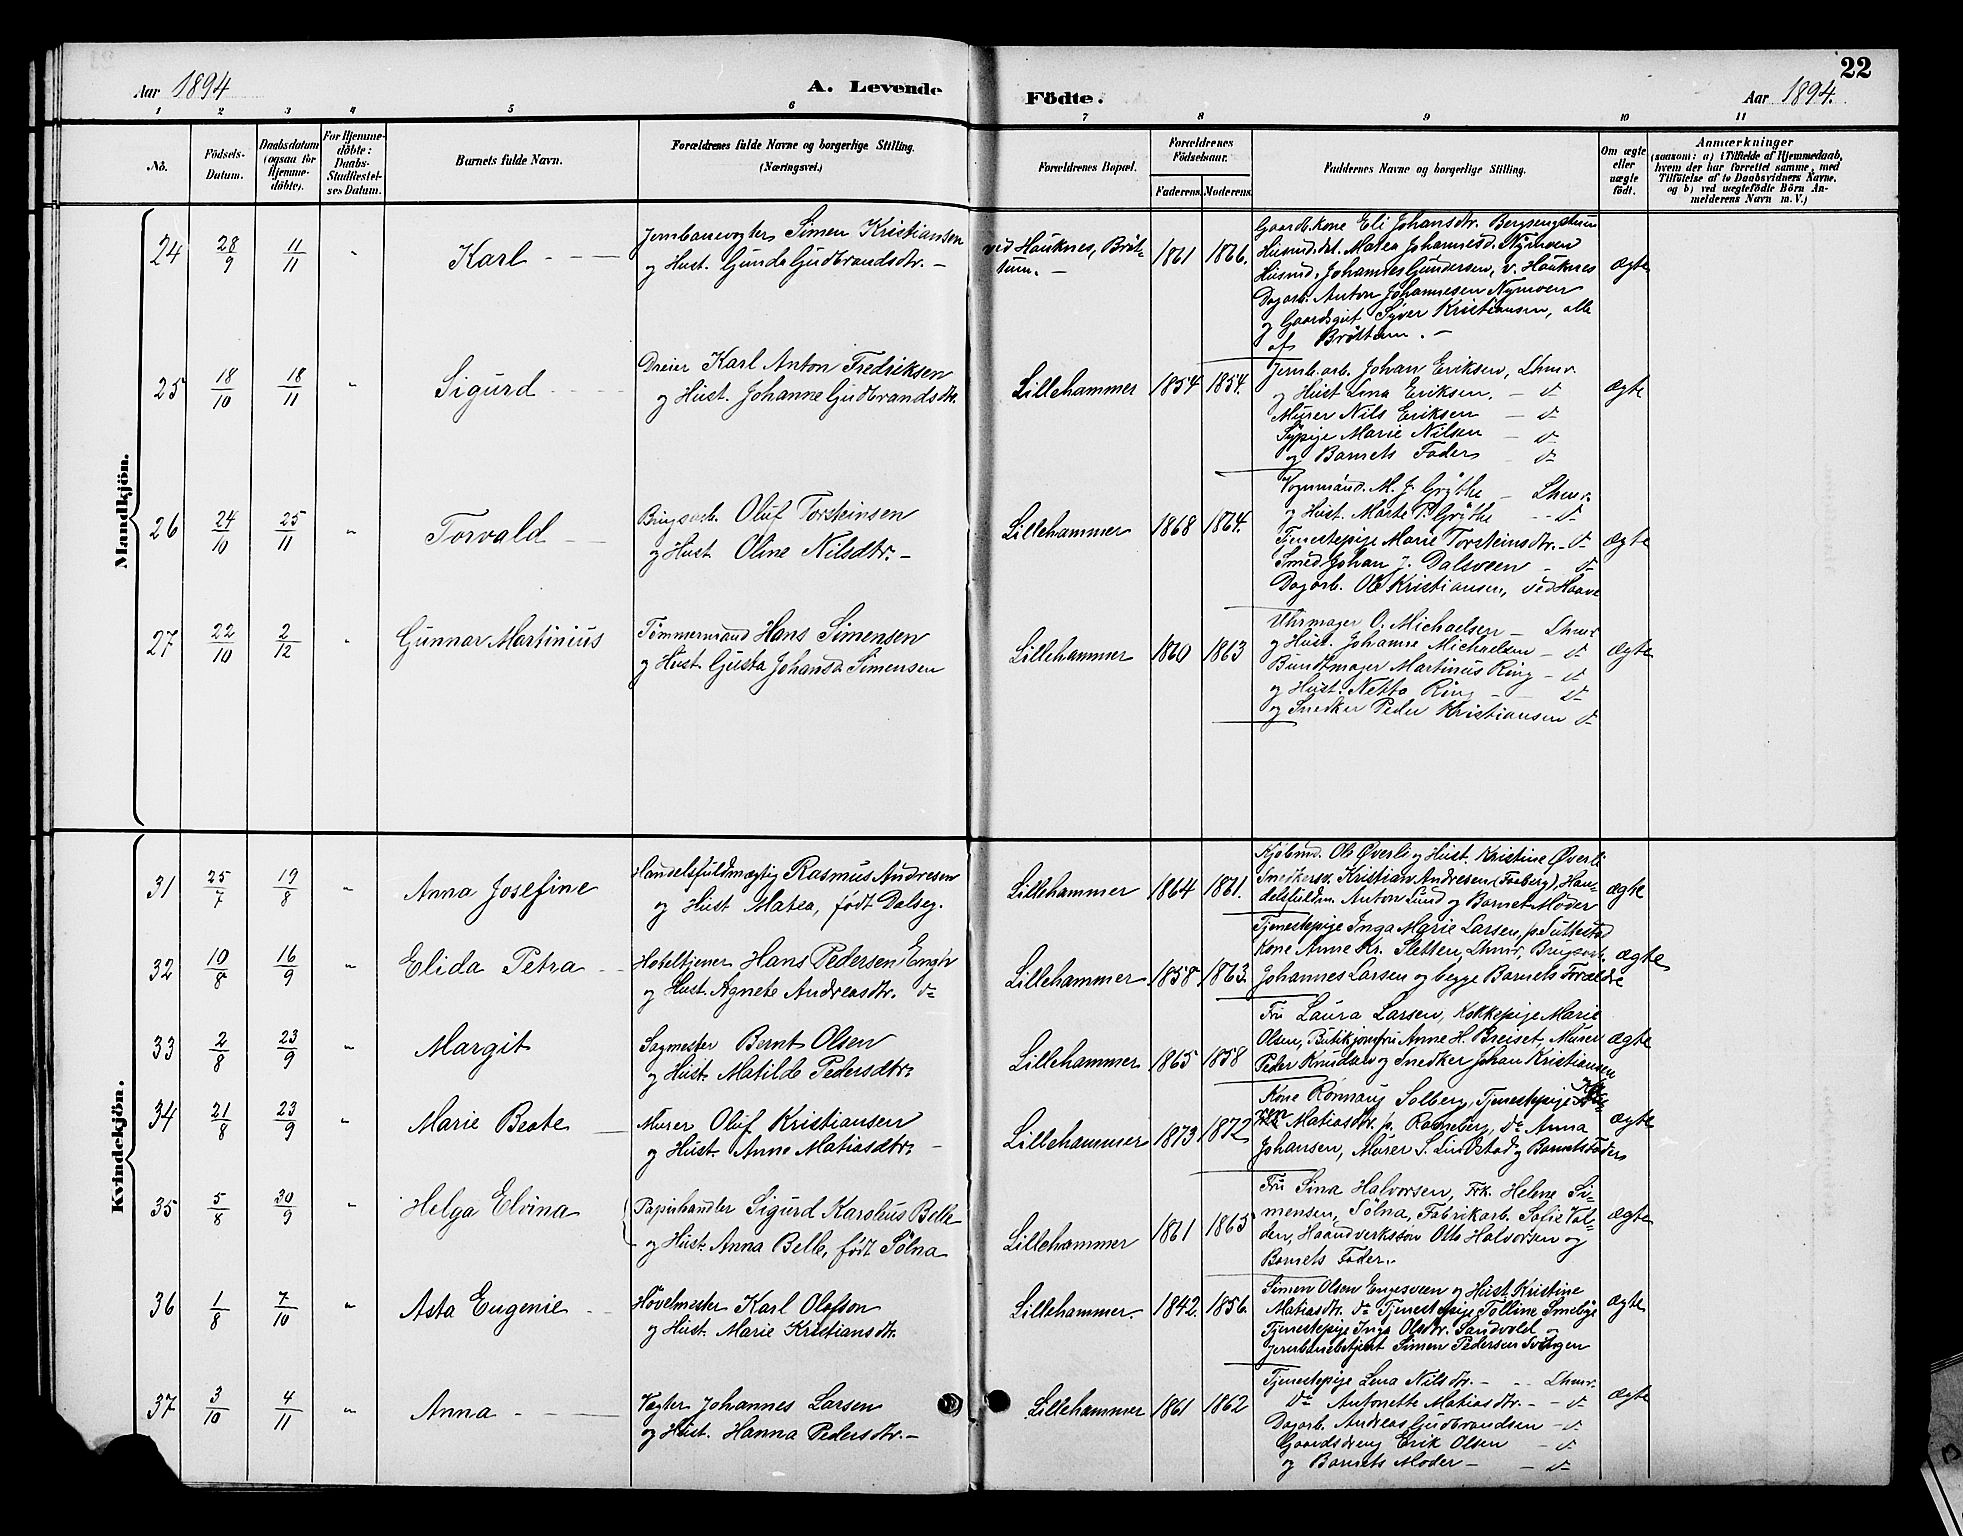 22
Aar 1894
A. Levende
Födte.
Aar 1894.
1 2 3 4 5 6 7 8 9 10 11
No.
Födsels-
Datum.
Daabsdatum
(ogsaa for
Hjemme-
döbte).
For Hjemme-
döbte:
Daabs-
Stadfæstel-
ses Datum.
Barnets fulde Navn.
Forældrenes fulde Navne og borgerlige Stilling.
(Næringsvei.)
Forældrenes Bopæl.
Forældrenes
Födselsaar.
Faderens.
Moderens.
Faddernes Navne og borgerlige Stilling.
Om ægte
eller
uægte
født.
Anmærkninger
(saasom: a) i Tilfælde af Hjemmedaab,
hvem der har forrettet samme, med
Tilföielse af to Daabsvidners Navne,
og b) ved uægtefödte Börn An-
melderens Navn m. V.)
Mandkjön.
24 28/9 11/11 " Karl
Jernbanevogter Simen Kristiansen
og Hust. Gunda Gudbrandsdtr.
ved Hauknes, Bröt-
tum.
1861 1866.
Gaardb.kone Eli Johansdtr. Bergseng
Husmd.dtr. Matea Johannesd. Nymoen
Husmd. Johannes Gundersen, v. Hauknes
Dagarb. Anton Johannesen Nymoen
og Gaardsgut Syver Kristiansen, alle
af Bröttum.
ægte
25 18/10 18/11 " Sigurd
Dreier Karl Anton Fredriksen
og Hust. Johanne Gudbrandsdtr.
Lillehammer
1854 1854.
Jernb.arb. Johan Eriksen, Lhmr.
og Hust Lina Eriksen. do
Murer Nils Eriksen do
Sypige Marie Nilsen do
og Barnets Fader do
ægte
26 24/10 25/11 " Torvald
Brugsarb. Oluf Torsteinsen
og Hust Oline Nilsdtr.
Lillehammer
1868 1864.
Vognmand. M. J. Gröthe Lhmr.
og Hust. Marte P. Gröthe do
Tjenestepige Marie Torsteinsdtr. do
Smed Johan J. Dalsveen do
Dagarb. Ole Kristiansen, ved Haave
ægte
27 22/10 2/12 " Gunnar Martinius
Tømmermand Hans Simensen
og Hust. Gusta Johansd. Simensen
Lillehammer
1860 1863
Uhrmager O. Michaelsen Lhmr
og Hust. Johanne Michaelsen do
Bundtmager Martinus Ring do
og Hust. Netta Ring do
og Snedker Peder Kristiansen do
ægte
Kvindekjön.
31 25/7 19/8 " Anna Josefine
Handelsfuldmægtig Rasmus Andresen
og Hust Matea, født Dalseg.
Lillehammer
1864 1861.
Kjøbmd. Ole Øverli og Hust. Kristine Øverli
Snedkersv. Kristian Andresen (Faaberg), Han-
delsfuldm. Anton Lund og Barnet Moder
ægte
32 10/8 16/9 " Elida Petra
Hoteltjener Hans Pedersen Engh
og Hust. Agnete Andreasdtr. do
Lillehammer
1858 1863.
Tjenestepige Inga Marie Larsen, p. Suttestad
Kone Anne Kr. Sletten, Lhmr, Brugsarb.
Johannes Larsen og begge Barnets Forældre
ægte
33 2/8 23/9 " Margit
Sagmester Bernt Olsen
og Hust. Matilde Pedersdtr.
Lillehammer
1865 1858
Fru Laura Larsen, Kokkepige Marie
Olsen, Butikjomfru Anne H. Breiset, Murer
Peder Knudsen og Snedker Johan Kristiansen
ægte
34 21/8 23/9 " Marie Beate
Murer Oluf Kristiansen
og Hust. Anne Matiasdtr.
Lillehammer
1873 1872
Kone Rönnaug Solberg, Tjenestepige
Matiasdtr. p. Ramberg, do Anna
Johansen, Murer S. Lundstad og Barnets Fader
ægte
35 5/8 30/9 " Helga Elvina
Papirhandler Sigurd Karolius Belle
og Hust. Anna Belle, født Sölna
Lillehammer
1861 1865
Fru Sina Halvorsen, Frk. Helene Si-
mensen, Sölna, Fabrikarb. Sofie Val-
den, Haandverkssøn Otto Halvorsen og
Barnets Fader.
ægte
36 1/8 7/10 " Asta Eugenie
Hövelmester Karl Olafson
og Hust. Marie Kristiansdtr.
Lillehammer.
1842. 1856.
Simen Olsen Engesveen og Hust. Kristine
Matiasdtr. do Tjenestepige Tolline Smebye
Tjenestepige Inga Olsdtr. Sandvold
Jernbanebetjent Simen Pedersen Svingen
ægte
37 3/10 4/11 " Anna
Vogter Johannes Larsen
og Hust. Hanna Pedersdtr.
Lillehammer
1861 1862
Tjenestepige Lena Nilsdtr. Lhmr.
do Antonette Matiasdtr. do
Dagarb. Andreas Gudbrandsen do
Gaardsdreng Erik Olsen do
og Barnets Moder do
ægte